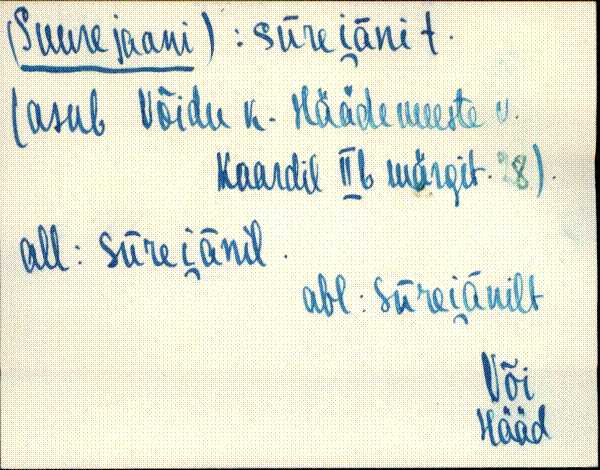 (Suurejaani) : sūrei̯āni t.
(asub Võidu k. Häädemeeste v.
Kaardil IIb märgit. 28).
all: sūrei̯ānil.
abl: sūrei̯ānilt
Või
Hääd